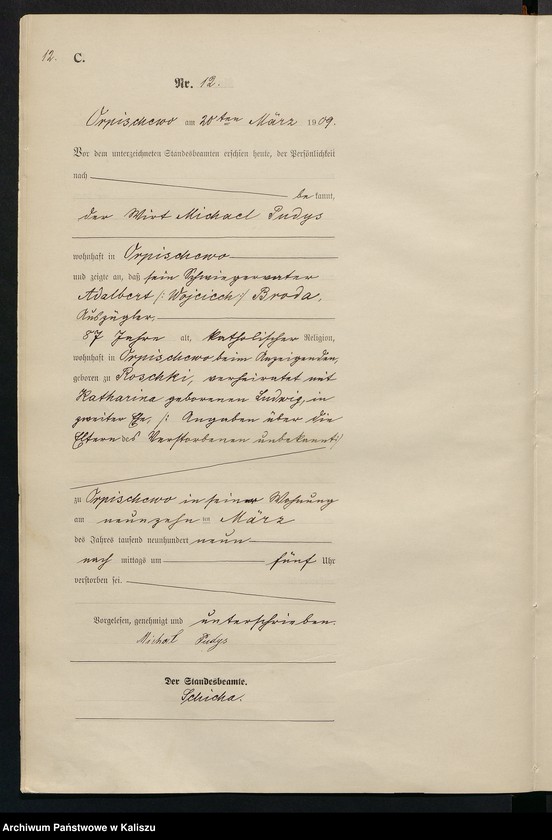 12. C.
Nr. 12.
Orpischewo am 20ten März 1909.
Vor dem unterzeichneten Standesbeamten erschien heute, der Persönlichkeit
nach
bekannt,
der Wirt Michael Pudys
wohnhaft in Orpischewo
und zeigte an, daß sein Schwiegervater
Adalbert /: Wojciech :/ Broda,
Auszügler,
87 Jahre alt, katholischer Religion,
wohnhaft in Orpischewo beim Anzeigenden,
geboren zu Roschki, verheiratet mit
Katharina geborenen Ludwig, in
zweiter Ehe, /: Angaben über die
Eltern des Verstorbenen unbekannt :/
zu Orpischewo in seiner Wohnung
am neunzehnten März
des Jahres tausend neunhundert neun
nach mittags um fünf Uhr
verstorben sei.
Vorgelesen, genehmigt und unterschrieben.
Michał Pudys
Der Standesbeamte.
Schicha.
Archiwum Państwowe w Kaliszu